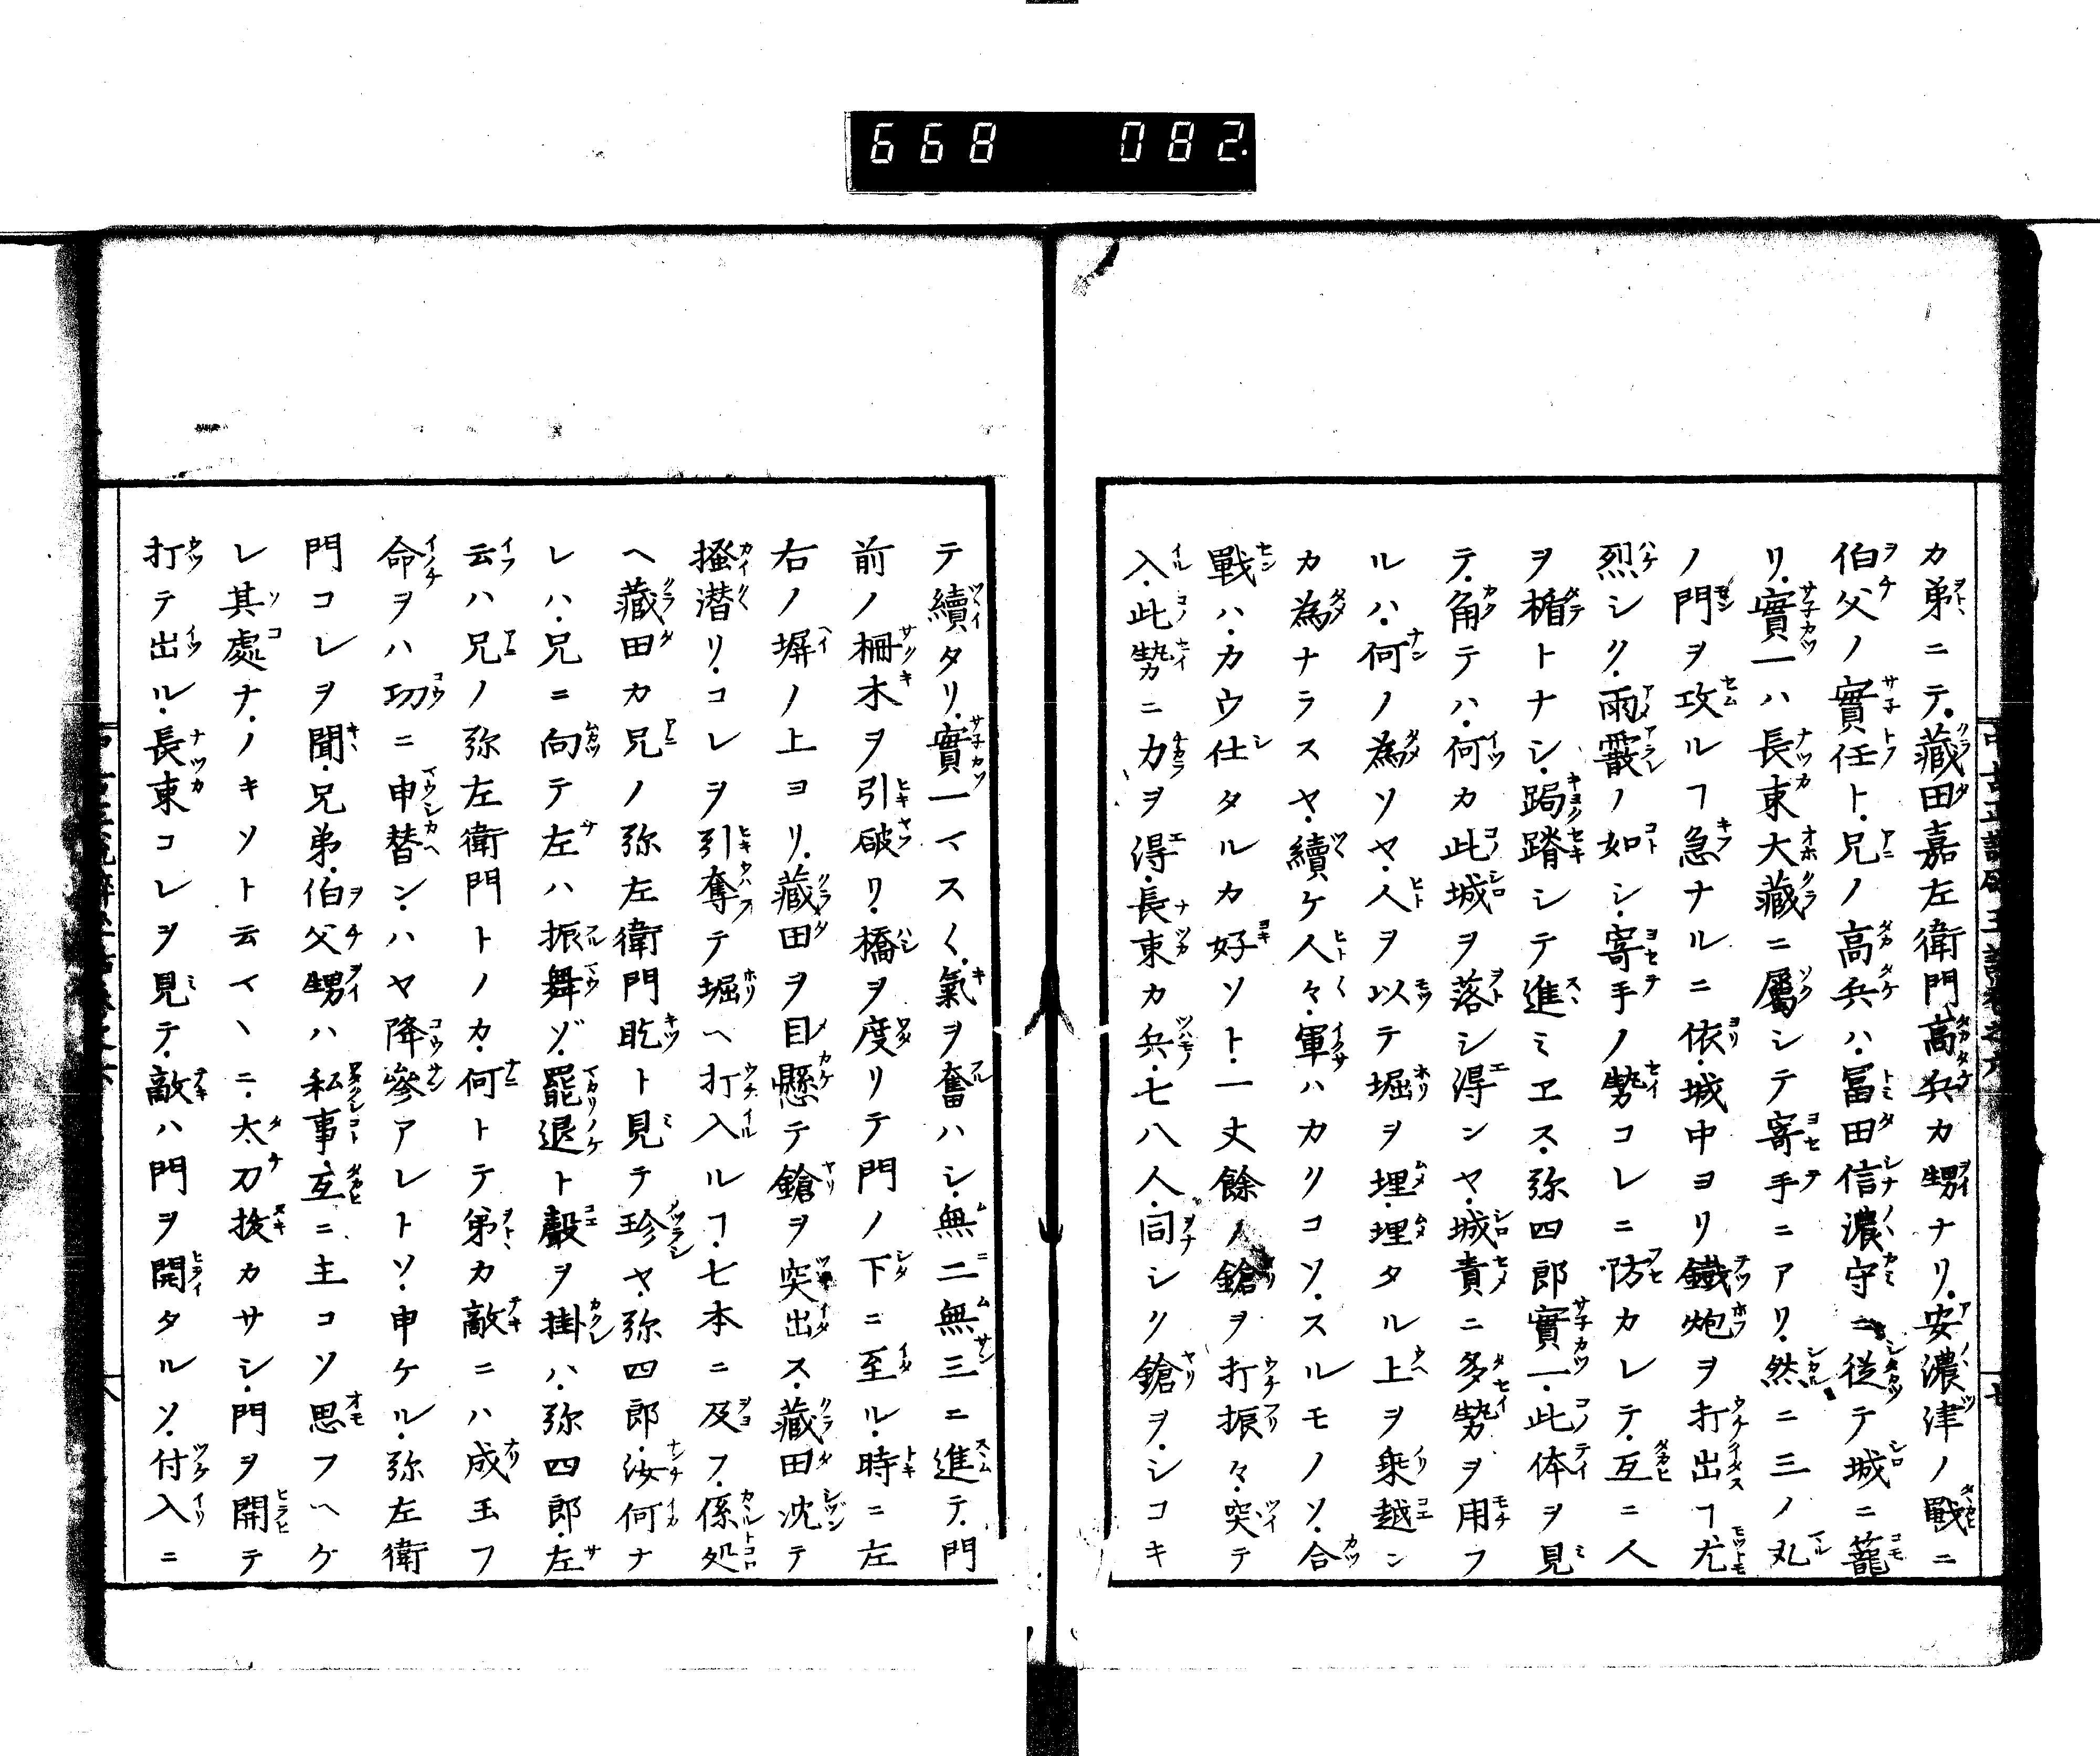 668 082
カ弟ニテ藏田嘉左衛門高兵カ甥ナリ安濃津ノ戰ニ
伯父ノ實任ト兄ノ高兵ハ冨田信濃守ニ従テ城ニ籠
リ實一ハ長束大藏ニ屬シテ寄手ニアリ然ニ三ノ丸
ノ門ヲ攻ルヿ急ナルニ依城中ヨリ鐵炮ヲ打出ヿ尤
烈シク雨霰ノ如シ寄手ノ勢コレニ防カレテ互ニ人
ヲ楯トナシ跼蹐シテ進ミヱス弥四郎實一此体ヲ見
テ角テハ何カ此城ヲ落シ得ンヤ城責ニ多勢ヲ用フ
ルハ何ノ為ソヤ人ヲ以テ堀ヲ埋埋タル上ヲ乗越ン
カ為ナラスヤ續ケ人々軍ハカリコソスルモノソ合
戰ハカウ仕タルカ好ソト一丈餘ノ鎗ヲ打振々突テ
入此勢ニ力ヲ得長束カ兵七八人同シク鎗ヲシコキ
テ續タリ實一イスく氣ヲ奮ハシ無二無三ニ進テ門
前ノ柵木ヲ引破リ橋ヲ度リテ門ノ下ニ至ル時ニ左
右ノ塀ノ上ヨリ藏田ヲ目懸テ鎗ヲ突出ス藏田沈テ
搔潜リコレヲ引奪テ堀ヘ打入ルヿ七本ニ及フ係処
ヘ藏田カ兄ノ弥左衛門屹ト見テ珍ヤ弥四郎汝何ナ
レハ兄ニ向テ左ハ振舞ゾ罷退ト聲ヲ掛ハ弥四郎左
云ハ兄ノ弥左衛門トノカ何トテ弟カ敵ニハ成玉フ
命ヲハ功ニ申替ンハヤ降參アレトソ申ケル弥左衛
門コレヲ聞兄弟伯父甥ハ私事互ニ主コソ思フヘケ
レ其處ナノキソト云イヽニ太刀拔カサシ門ヲ開テ
打テ出ル長束コレヲ見テ敵ハ門ヲ開タルソ付入ニ